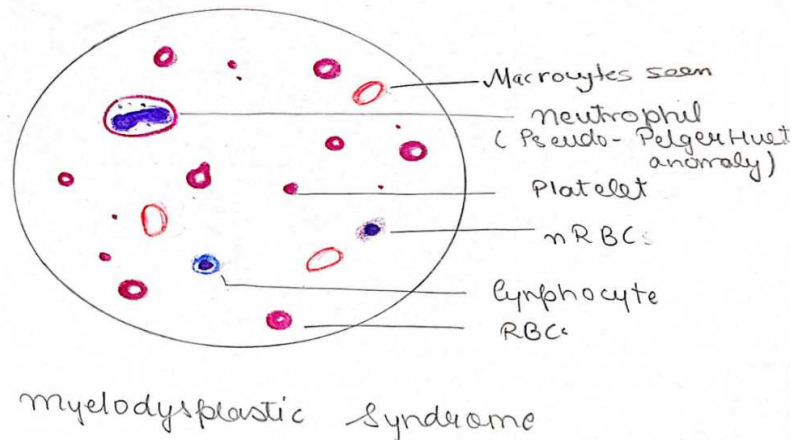 Macrocytes seen
neutrophil
(Pseudo-PelgerHuet
anomaly)
Platelet
nRBCs
lymphocyte
RBCs
Myelodysplastic Syndrome